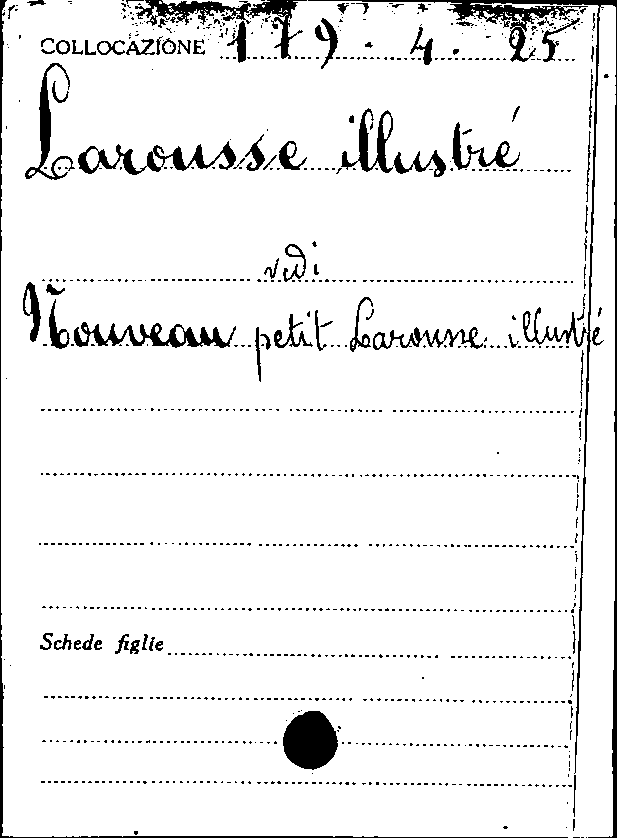 COLLOCAZIONE 179. 4. 25
Larousse illustré
vedi
Nouveau petit Larousse illustré
Schede figlie